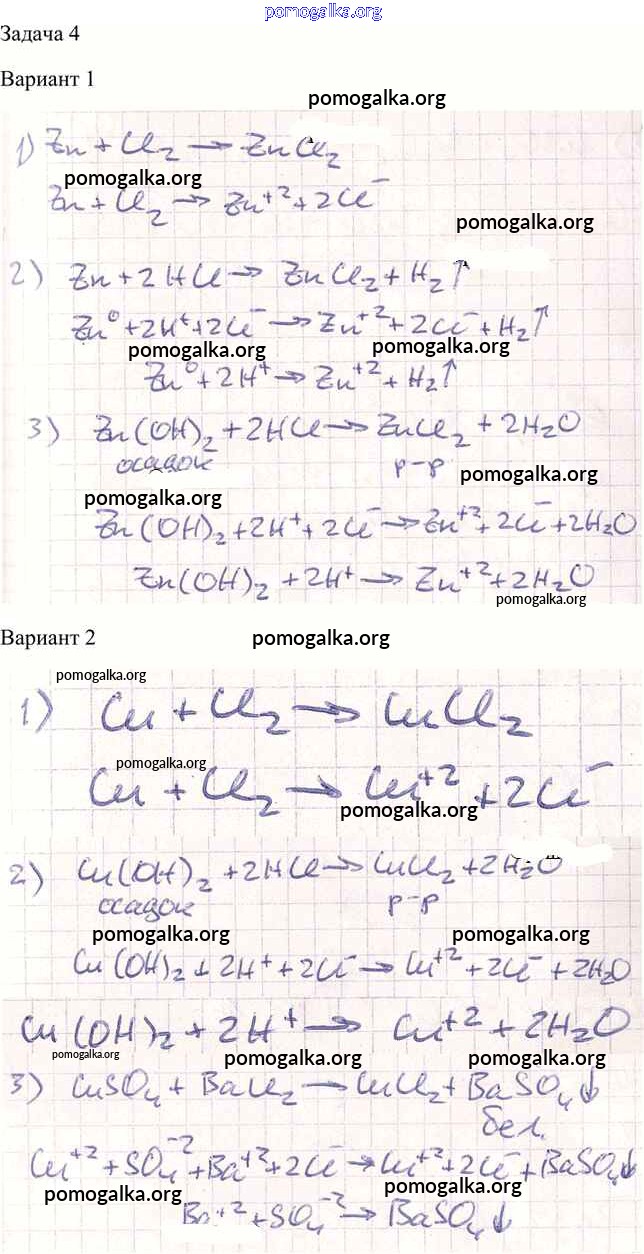 pomogalka.org
Задача 4
Вариант 1
pomogalka.org
1) Zn + Cl₂ → ZnCl₂
pomogalka.org
Zn + Cl₂ → Zn⁺² + 2Cl⁻
pomogalka.org
2) Zn + 2HCl → ZnCl₂ + H₂↑
Zn⁰ + 2H⁺ + 2Cl⁻ → Zn⁺² + 2Cl⁻ + H₂↑
pomogalka.org pomogalka.org
Zn⁰ + 2H⁺ → Zn⁺² + H₂↑
3) Zn(OH)₂ + 2HCl → ZnCl₂ + 2H₂O
осадок р-р
pomogalka.org
pomogalka.org
Zn(OH)₂ + 2H⁺ + 2Cl⁻ → Zn⁺² + 2Cl⁻ + 2H₂O
Zn(OH)₂ + 2H⁺ → Zn⁺² + 2H₂O
pomogalka.org
Вариант 2 pomogalka.org
pomogalka.org
1) Cu + Cl₂ → CuCl₂
pomogalka.org
Cu + Cl₂ → Cu⁺² + 2Cl⁻
pomogalka.org
2) Cu(OH)₂ + 2HCl → CuCl₂ + 2H₂O
осадок р-р
pomogalka.org pomogalka.org
Cu(OH)₂ + 2H⁺ + 2Cl⁻ → Cu⁺² + 2Cl⁻ + 2H₂O
Cu(OH)₂ + 2H⁺ → Cu⁺² + 2H₂O
pomogalka.org pomogalka.org pomogalka.org
3) CuSO₄ + BaCl₂ → CuCl₂ + BaSO₄↓
бел.
Cu⁺² + SO₄⁻² + Ba⁺² + 2Cl⁻ → Cu⁺² + 2Cl⁻ + BaSO₄↓
pomogalka.org pomogalka.org
Ba⁺² + SO₄⁻² → BaSO₄↓